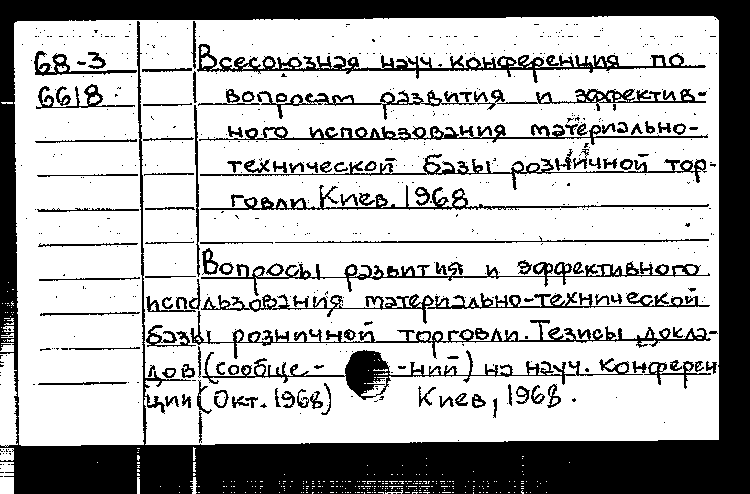 68-3 Всесоюзная науч. конференция по
6618 вопросам развития и эффектив-
ного использования материально-
технической базы розничной тор-
говли. Киев. 1968.
Вопросы развития и эффективного
использования материально-технической
базы розничной торговли. Тезисы докла-
дов (сообще- -ний) на науч. конферен
ции (Окт. 1968) Киев, 1968.